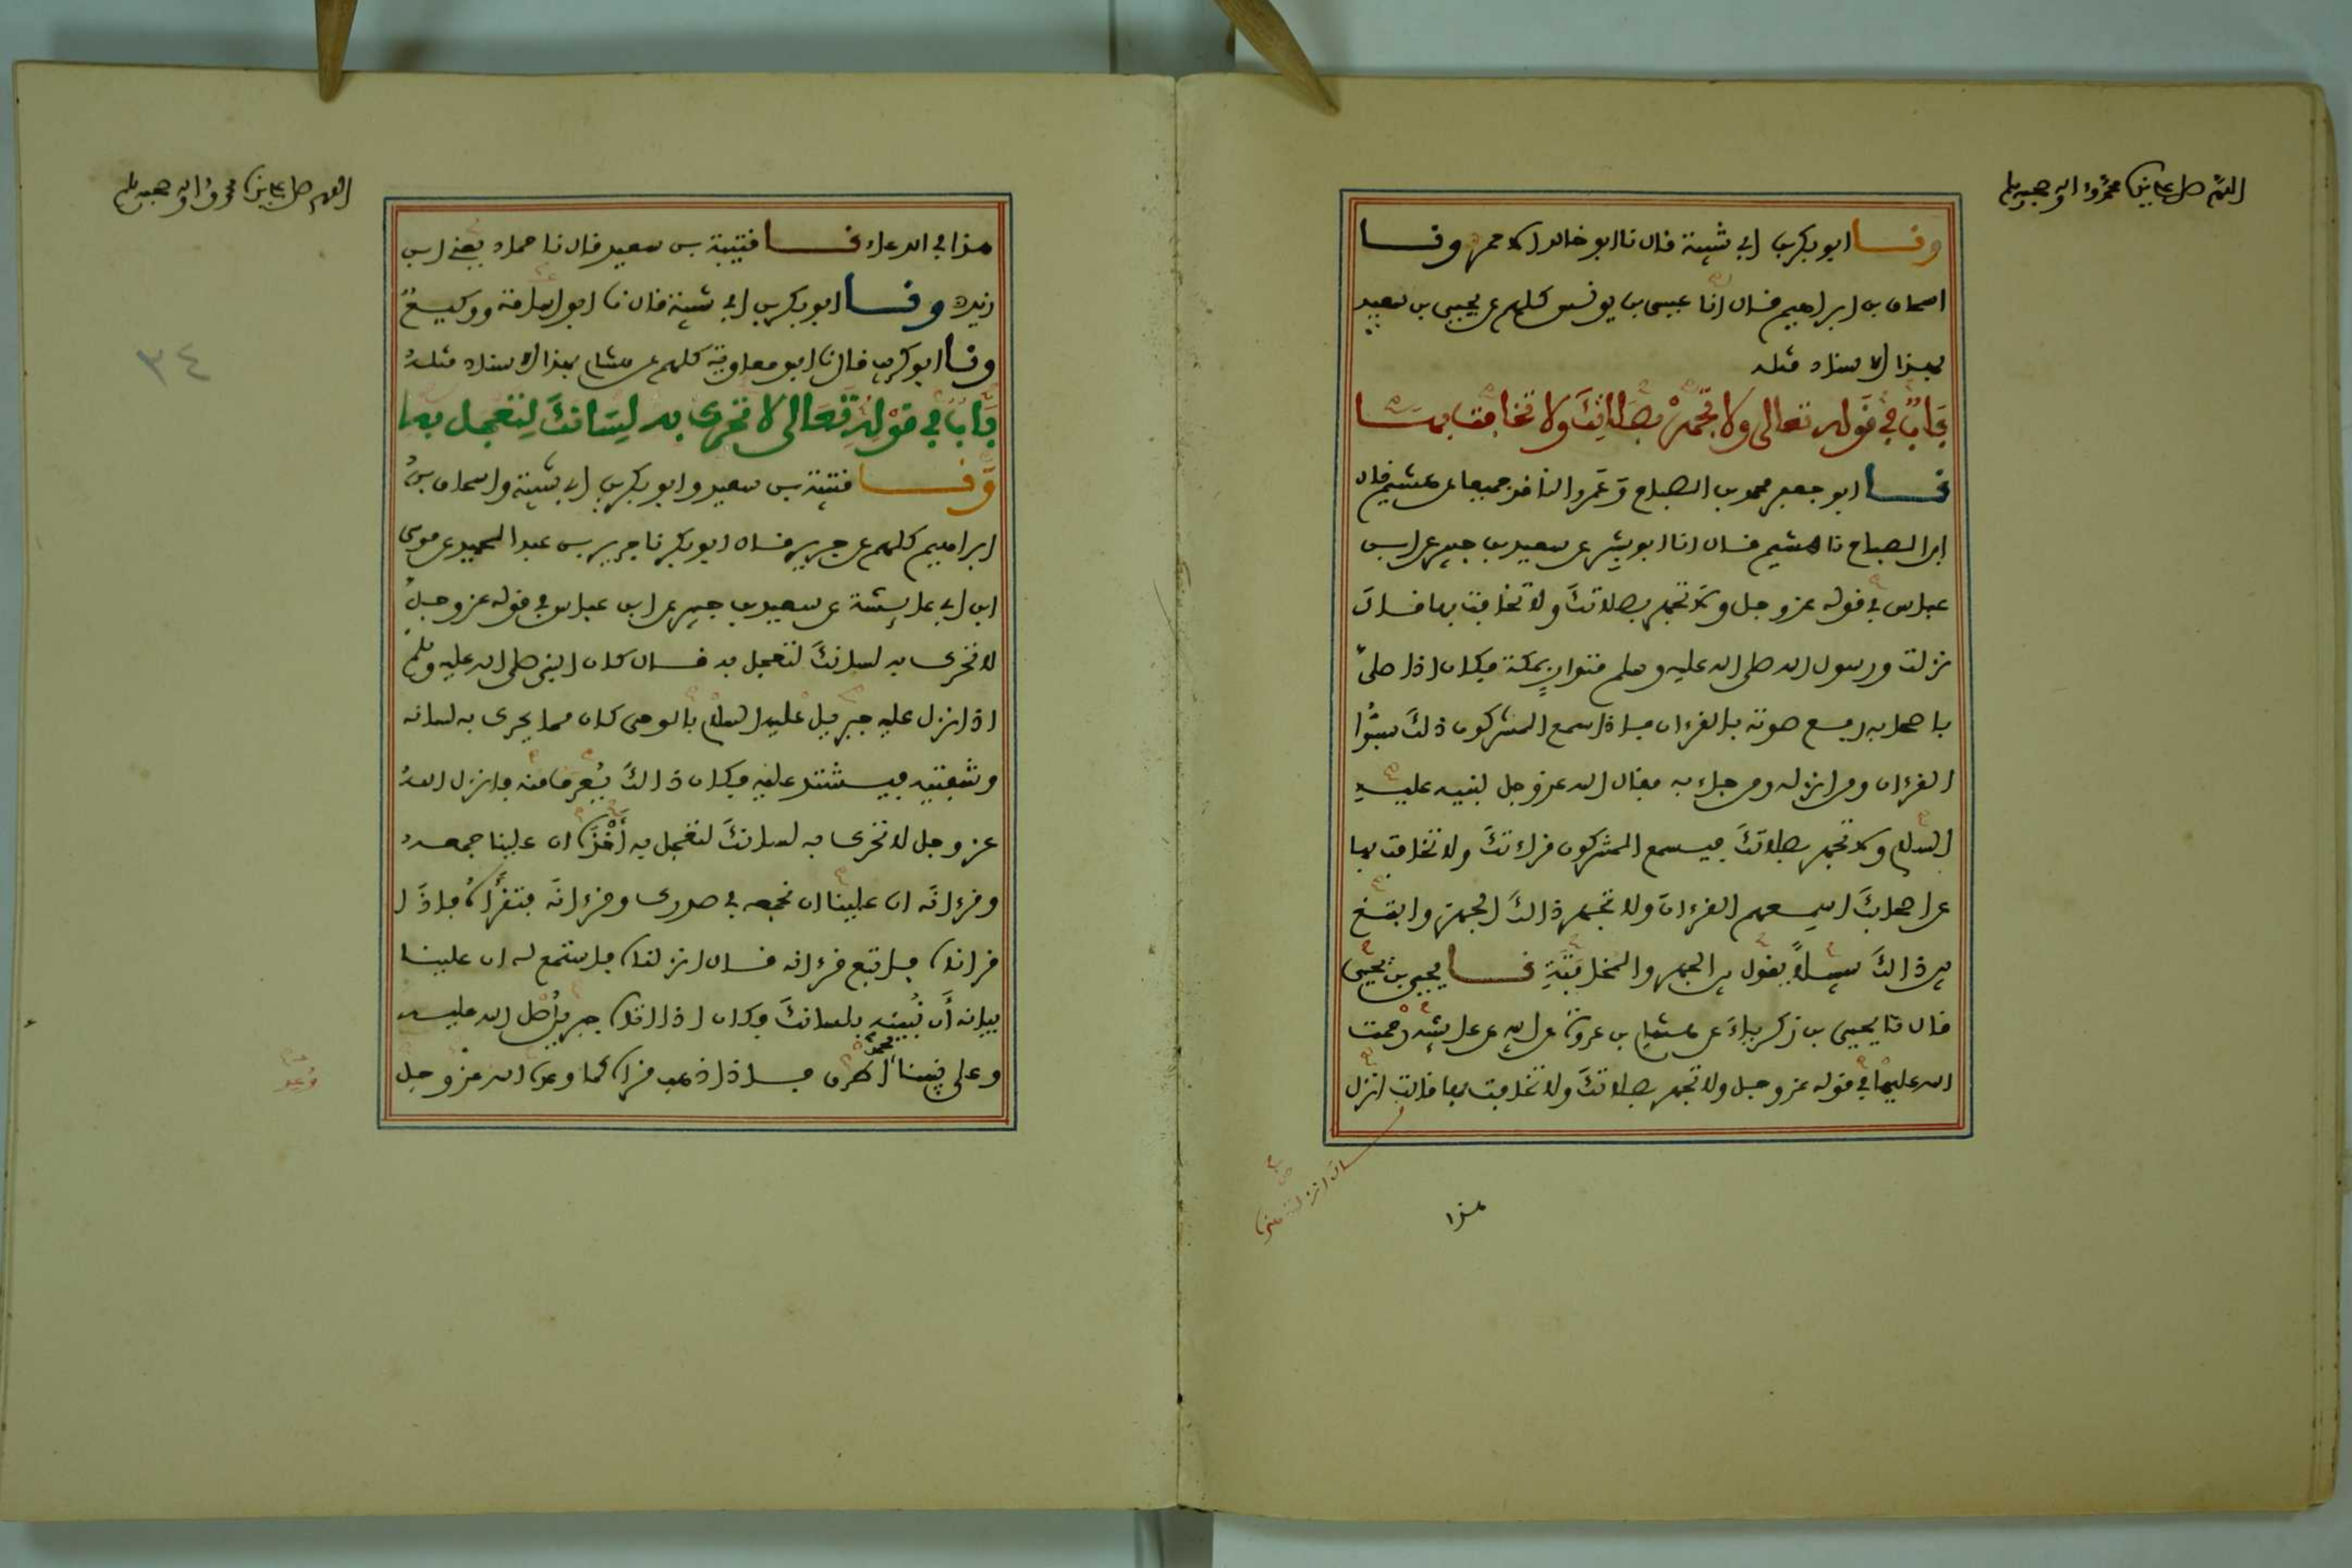 اللهم صل على نبينا محمد وءاله وصحبه وسلم
ونا ابو بكر بن ابي شيبة قال نا ابو خالد الاحمر ونا
اسحاق بن ابراهيم قال انا عيسى بن يونس كلهم عن يحيى بن سعيد
بهذا الاسناد مثله
باب في قوله تعالى ولا تجهر بصلاتك ولا تخافت بها
نا ابو جعفر محمد بن الصباح وعمرو الناقد جميعا عن هشيم قال
ابن الصباح نا هشيم قال انا ابو بشر عن سعيد بن جبير عن ابن
عباس في قوله عز وجل ولا تجهر بصلاتك ولا تخافت بها قال
نزلت ورسول الله صلى الله عليه وسلم متوار بمكة فكان اذا صلى
باصحابه رفع صوته بالقرءان فاذا سمع المشركون ذلك سبوا
القرءان ومن انزله ومن جاء به فقال الله عز وجل لنبيه عليه
السلام ولا تجهر بصلاتك فيسمع المشركون قراءتك ولا تخافت بها
عن اصحابك اسمعهم القرءان ولا تجهر ذالك الجهر وابتغ
بين ذالك سبيلا يقول بين الجهر والمخافتة نا يحيى بن يحيى
قال نا يحيى بن زكرياء عن هشام بن عروة عن ابيه عن عائشة رحمت
الله عليها في قوله عز وجل ولا تجهر بصلاتك ولا تخافت بها قالت انزل
هذا
اللهم صل على نبينا محمد وءاله وصحبه وسلم
هذا في الدعاء نا قتيبة بن سعيد قال نا حماد يعني ابن
زيد ونا ابو بكر بن ابي شيبة قال نا ابو اسامة ووكيع
ونا ابو كريب قال نا ابو معاوية كلهم عن هشام بهذا الاسناد مثله
باب في قوله تعالى لا تحرك به لسانك لتعجل به
ونا قتيبة بن سعيد وابو بكر بن ابي شيبة واسحاق بن
ابراهيم كلهم عن جرير قال ابو بكر نا جرير بن عبد الحميد عن موسى
ابن ابي عايشة عن سعيد بن جبير عن ابن عباس في قوله عز وجل
لا تحرك به لسانك لتعجل به قال كان النبي صلى الله عليه وسلم
اذا نزل عليه جبريل عليه السلام بالوحي كان مما يحرك به لسانه
وشفتيه فيشتد عليه فكان ذالك يعرف منه فانزل الله
عز وجل لا تحرك به لسانك لتعجل به أخذه ان علينا جمعه
وقرءانه ان علينا ان نجمعه في صدرك وقرءانه فتقرأه فاذا
قراناه فاتبع قرءانه قال انزلناه فاستمع له ان علينا
بيانه أن نبينه بلسانك فكان اذا اتاه جبريل صلى الله عليه
وعلى نبينا محمد اطرق فاذا ذهب قراه كما وعده الله عز وجل
٣٤